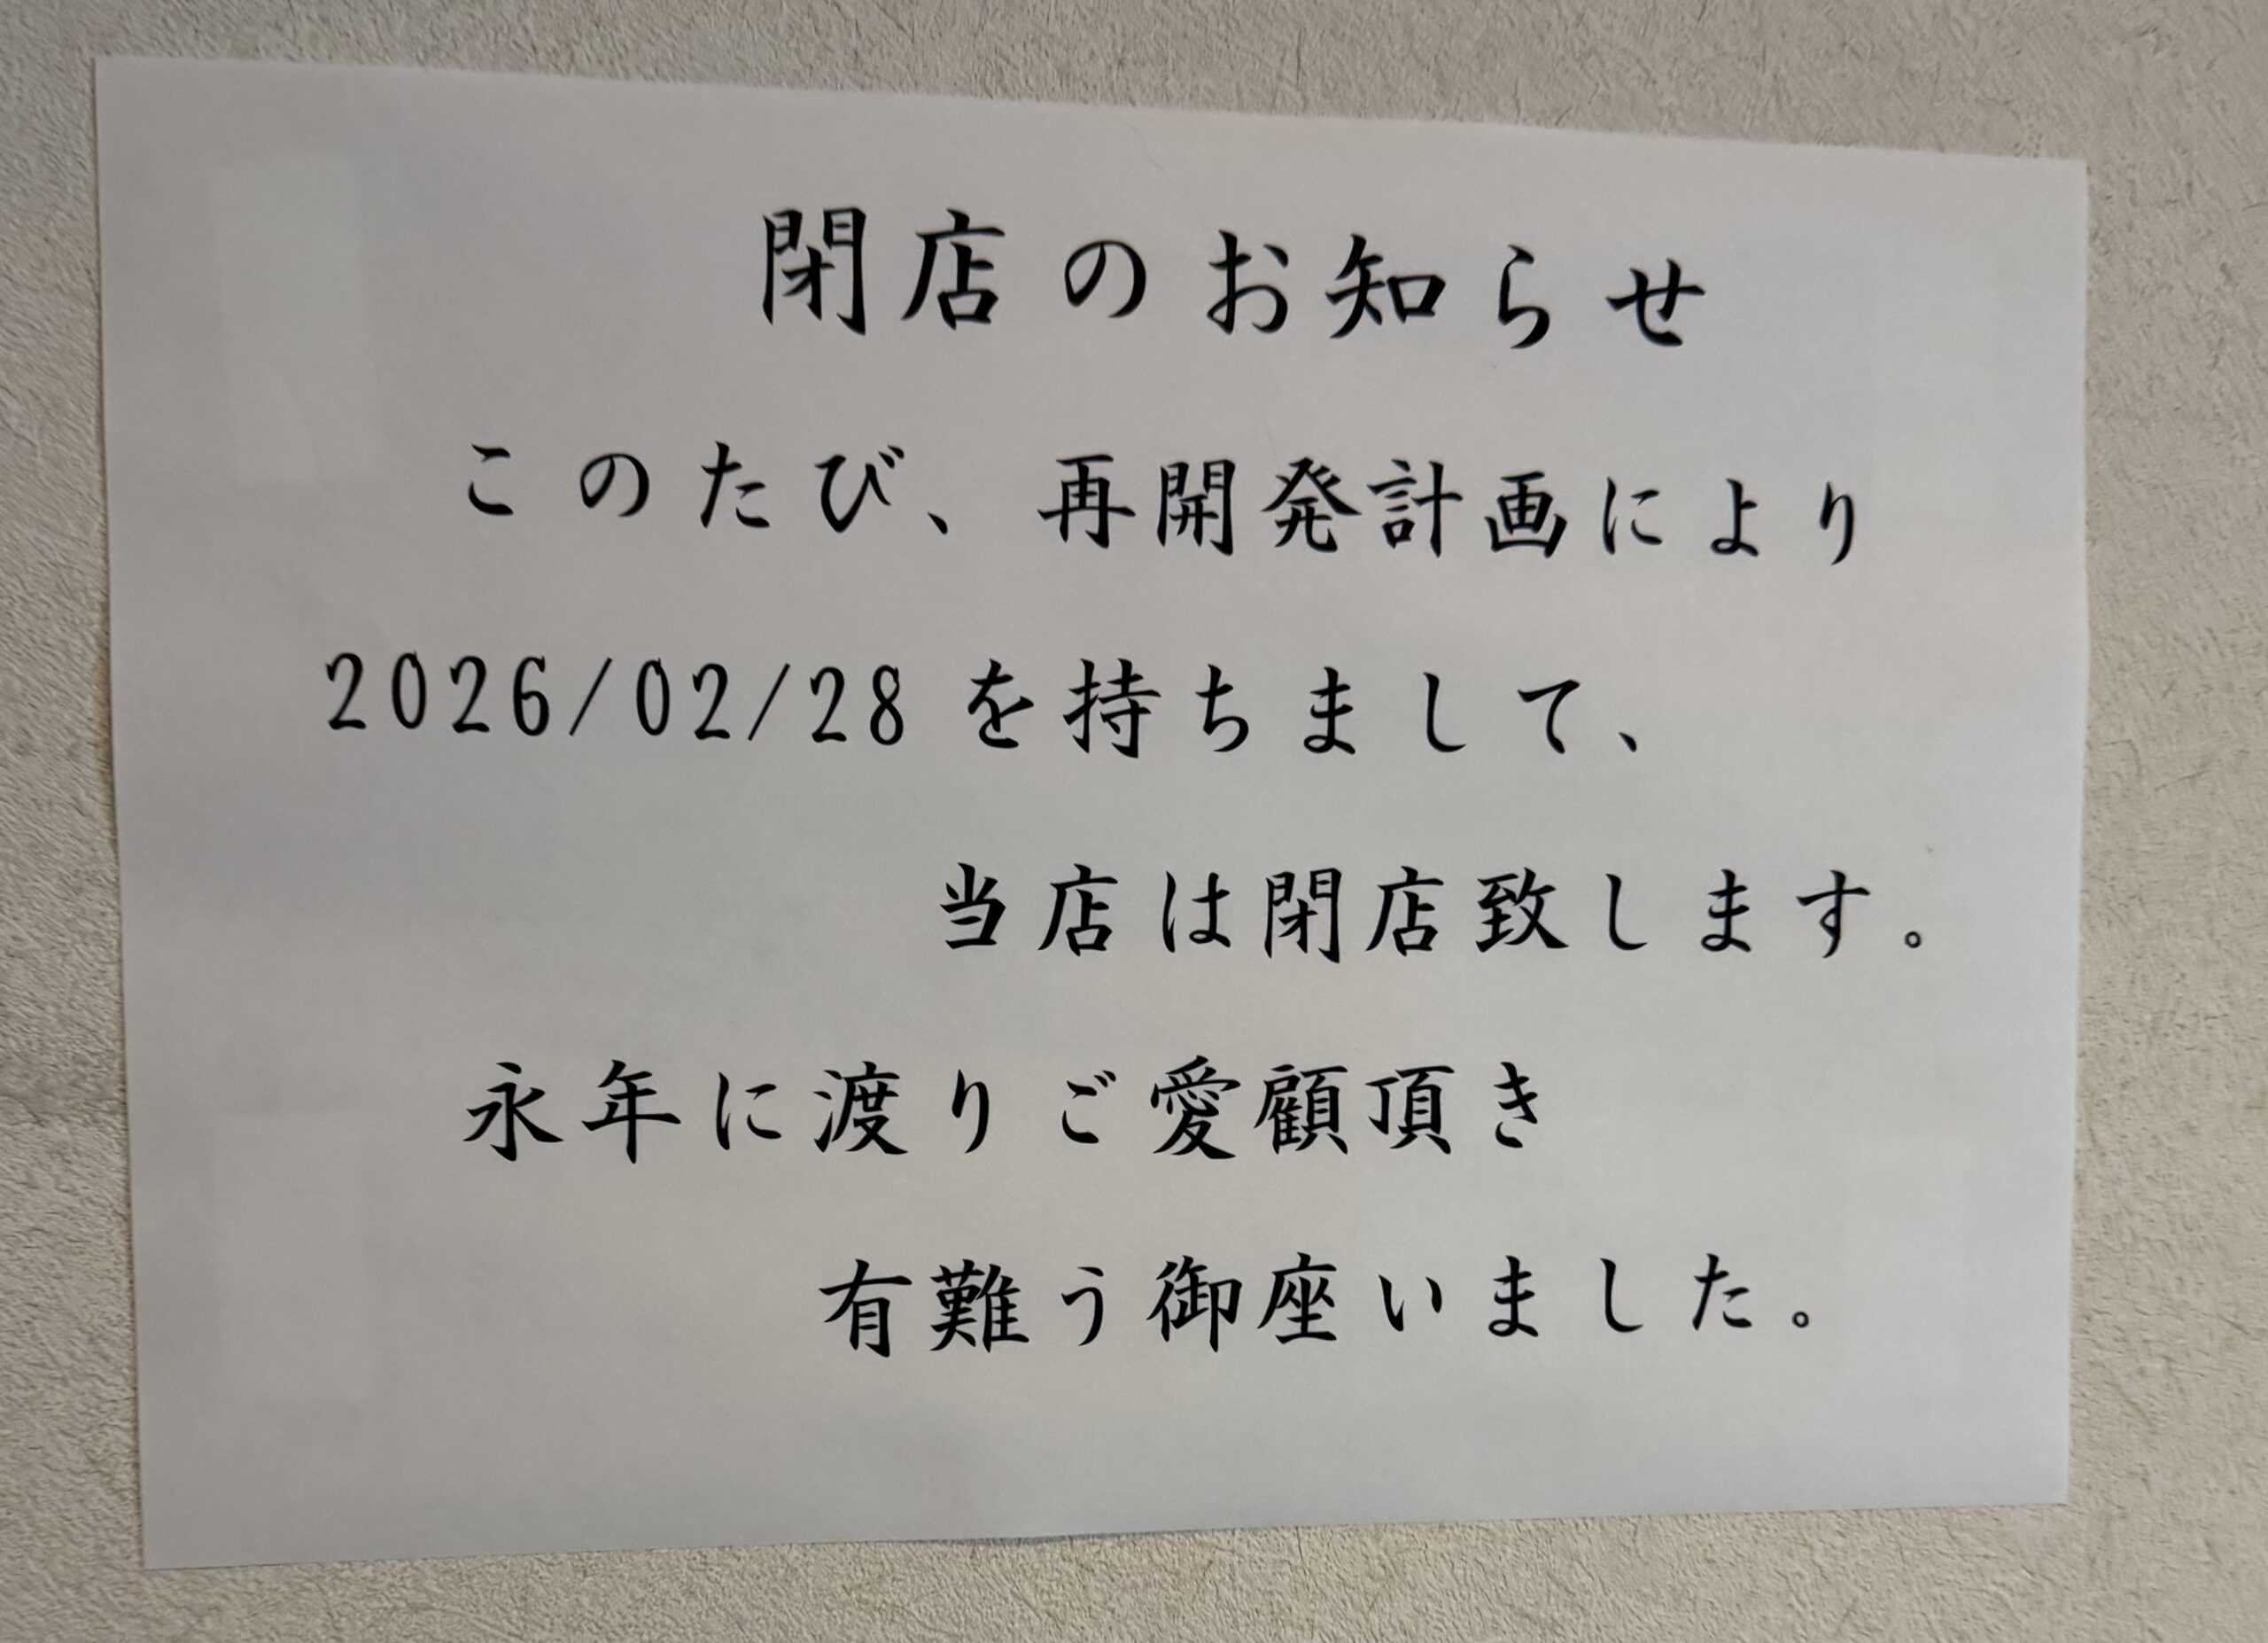 閉店のお知らせ
このたび、再開発計画により
2026/02/28を持ちまして、
当店は閉店致します。
永年に渡りご愛顧頂き
有難う御座いました。